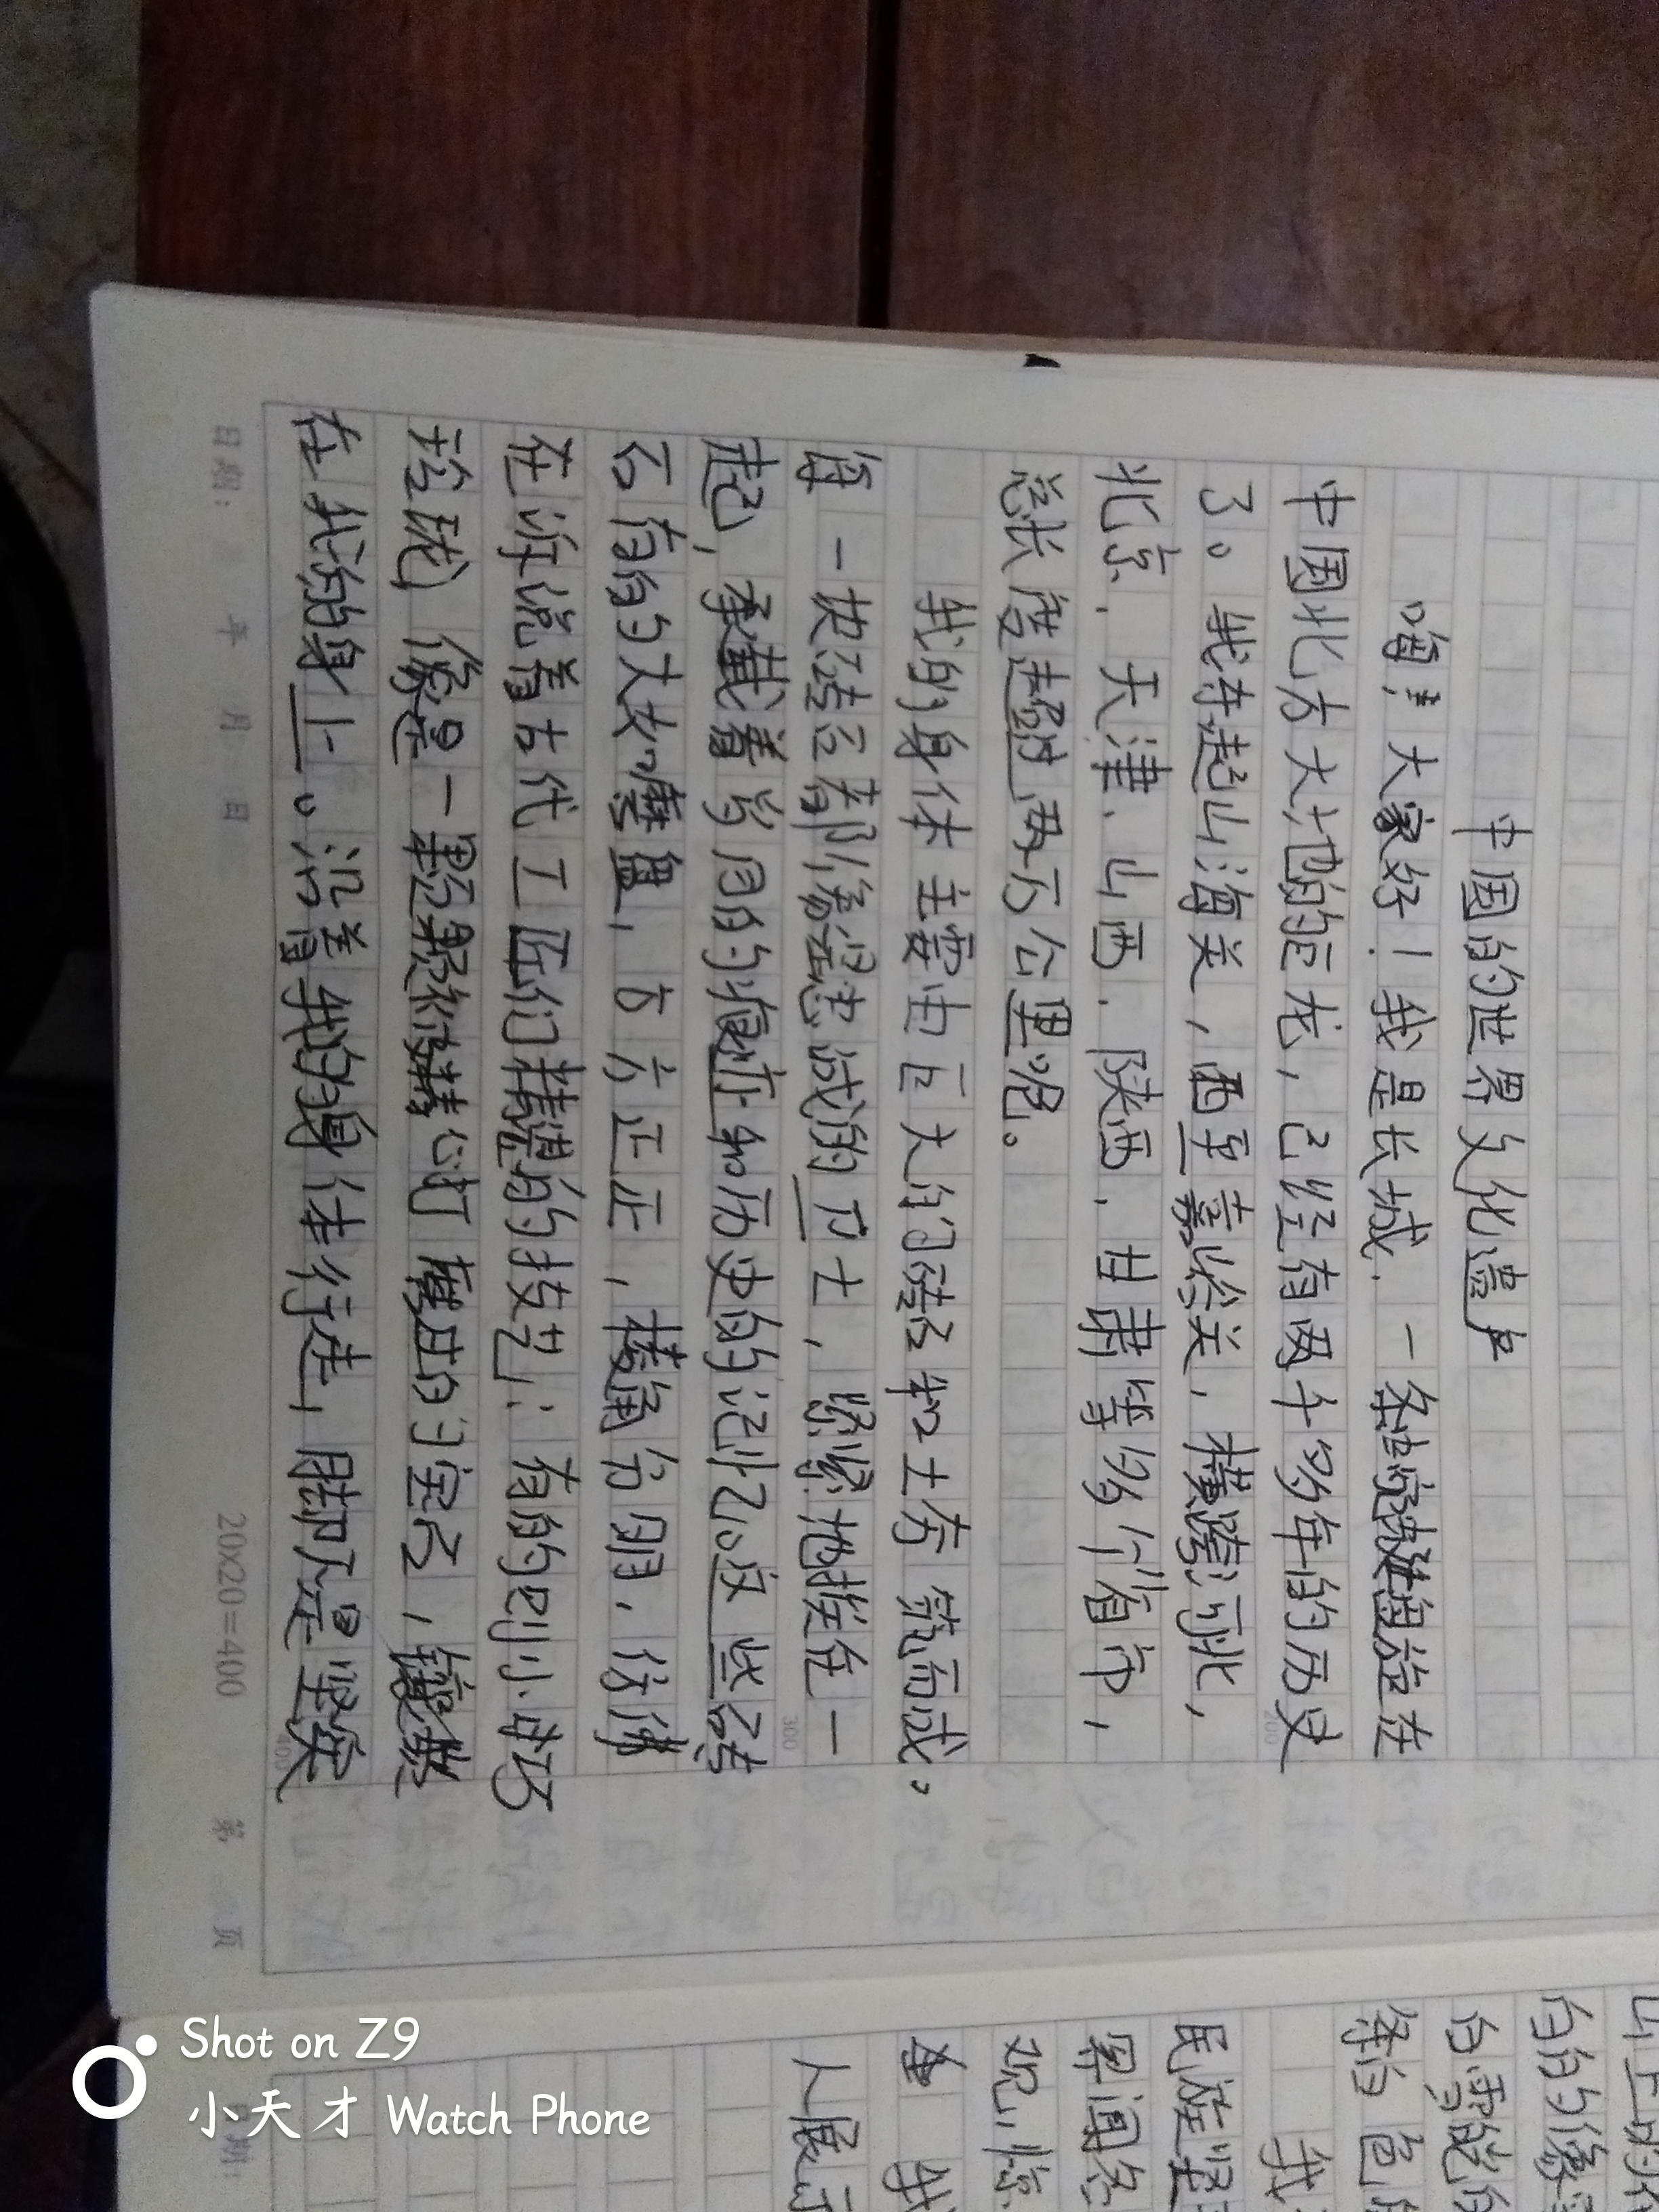 中国的世界文化遗产
嗨！大家好！我是长城，一条蜿蜒盘旋在
中国北方大地的巨龙，已经有两千多年的历史
了。我东起山海关，西至嘉峪关，横跨河北，
北京、天津、山西、陕西、甘肃等多个省市，
总长度超过两万公里呢。
我的身体主要由巨大的砖石和土夯筑而成。
每一块砖石都像忠诚的卫士，紧紧地挨在一
起，承载着岁月的痕迹和历史的记忆。这些砖
石有的大如磨盘，方方正正，棱角分明，仿佛
在诉说着古代工匠们精湛的技艺；有的则小巧
玲珑，像是一颗颗精心打磨的宝石，镶嵌
在我的身上。沿着我的身体行走，脚下是坚实
日期： 年 月 日
20×20=400
第 页
200
300
400
山上的
白的像
白雪皑
等自
色的
我
民族坚
累闻名
观，惊
我
人展示
Shot on Z9
小天才 Watch Phone